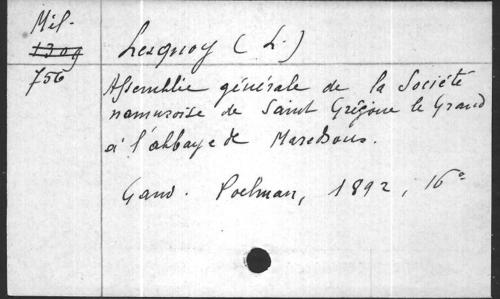 Mél.
1309
756
Lesquoy (L.)
Assemblée générale de la Société
namuroise de Saint Grégoire le Grand
à l'abbaye de Maredsous.
Gand. Poelman, 1892, 16°